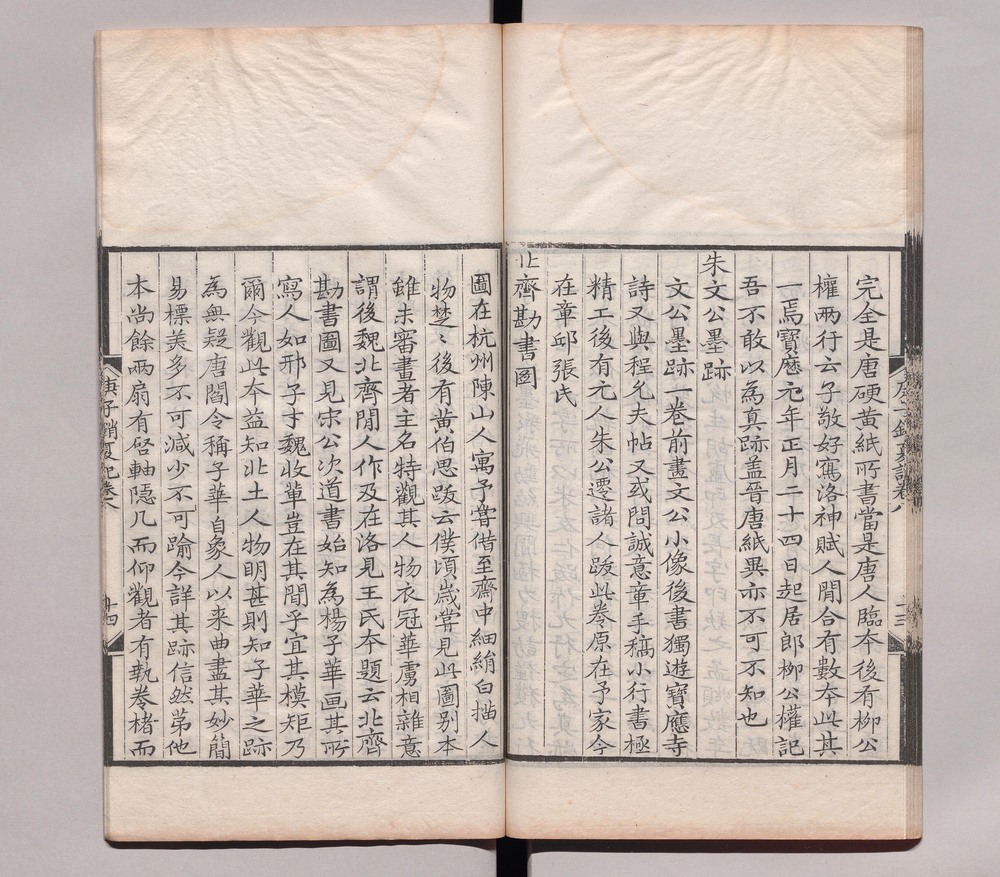 完全是唐硬黄紙所書當是唐人臨夲後有柳公
權两行云子敬好寫洛神賦人間合有數夲此其
一焉寶曆元年正月二十四日起居郎柳公權記
吾不敢以為真跡盖晉唐紙異亦不可不知也
朱文公墨跡
文公墨跡一卷前畫文公小像後書獨遊寶應寺
詩又與程允夫帖又或問誠意章手稿小行書極
精工後有元人朱公遷諸人跋此卷原在予家今
在章邱張氏
北齊勘書圖
圖在杭州陳山人寓予嘗借至齋中細絹白描人
物楚〻後有黄伯思跋云僕頃嵗常見此圖别本
雖未審畫者主名特觀其人物衣冠華虜相雜意
謂後魏北齊間人作及在洛見王氏夲題云北齊
勘書圖又見宋公次道書始知為楊子華画其所
寫人如邢子才魏收輩豈在其間乎宜其模矩乃
爾今觀此夲益知北土人物明甚則知子華之跡
為無疑唐閻令稱子華自象人以来曲盡其妙簡
易標美多不可減少不可踰今詳其跡信然第他
本尚餘两扇有啓軸隱几而仰觀者有執卷楮而
庚子銷夏記卷八
十四